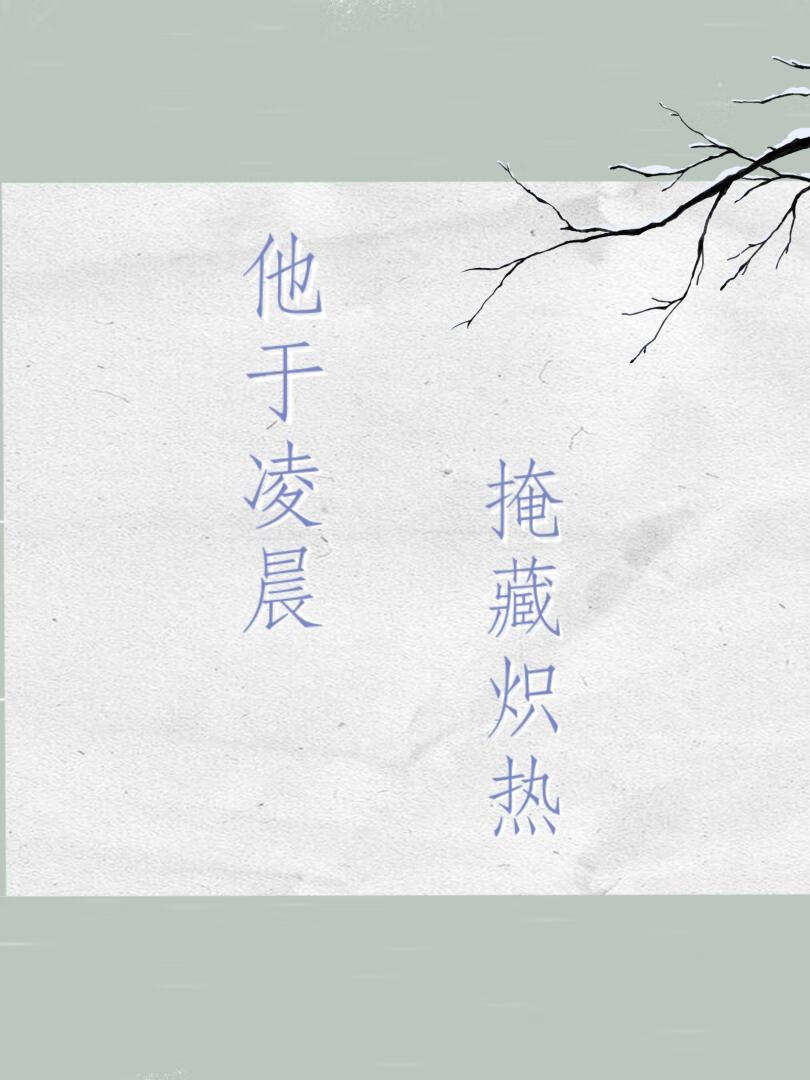 他于凌晨
掩藏炽热